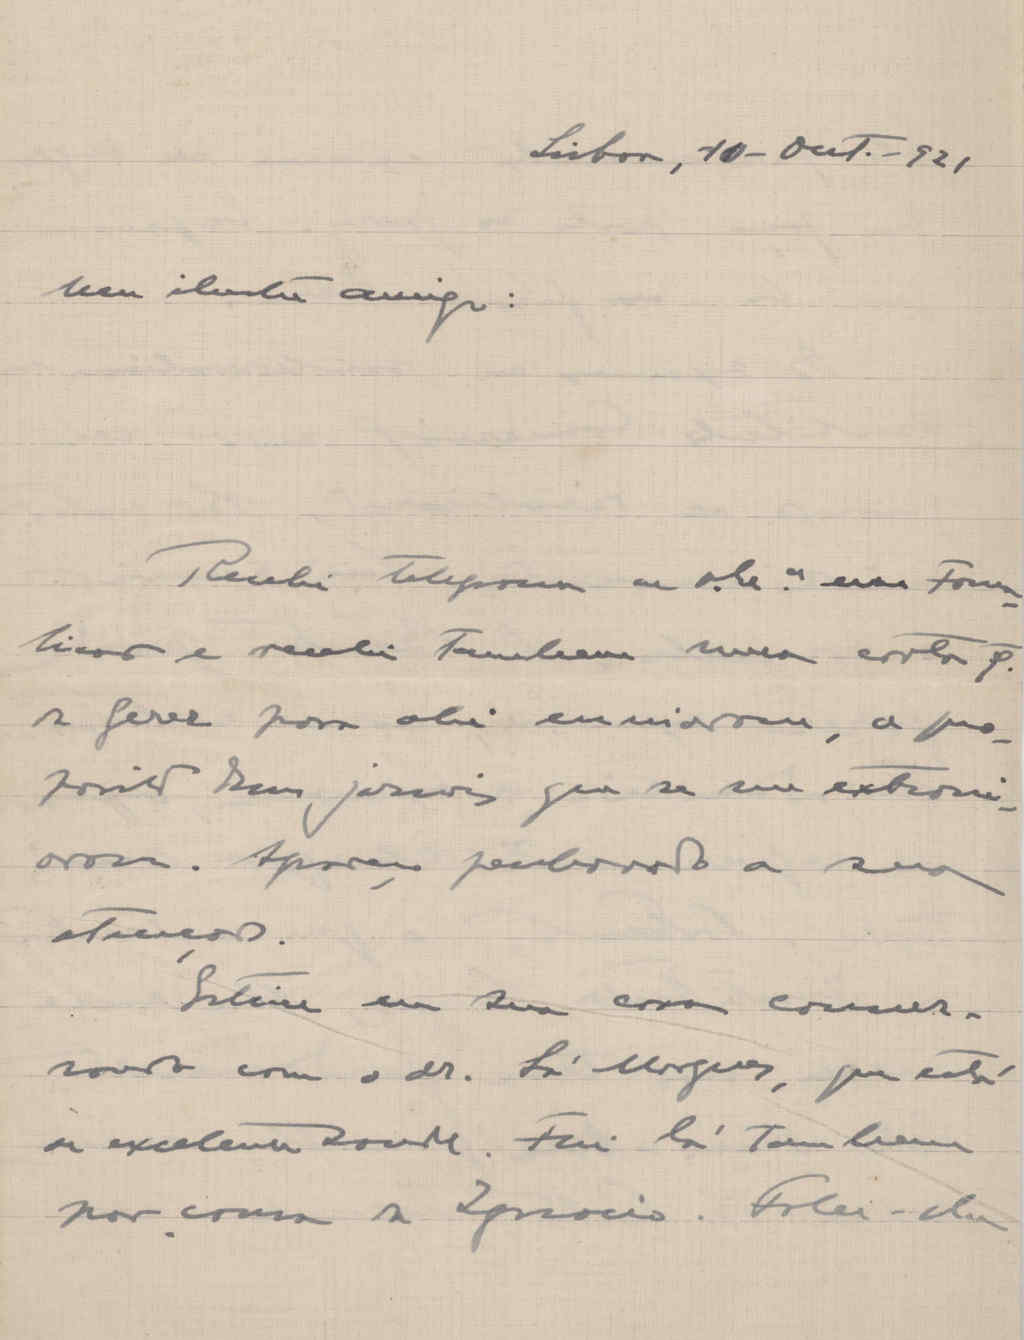 Lisboa, 10-Out.-921
Meu ilustre amigo:
Recebi telegrama em
e recebi tambem uma carta q.
de Gerez para ahi enviaram, a pro-
posito duns jornais que se me extravi-
aram. Agradeço penhorado a sua
atenção.
Estive em sua casa conver-
sando com o dr. Sá Marques, que está
de excelente saude. Fui lá tambem
por causa de Ignacio. Falei-lhe